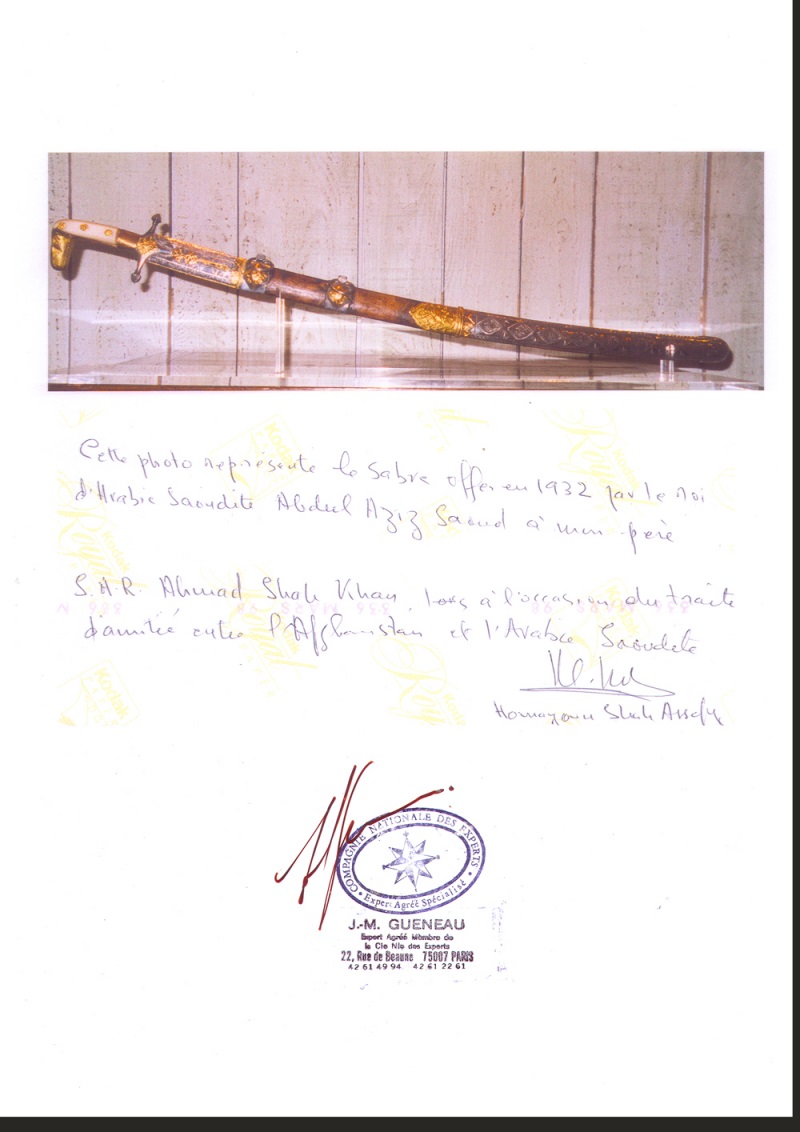 Cette photo représente le Sabre offert en 1932 par le roi
d'Arabie Saoudite Abdul Aziz Saoud à mon père
S.A.R. Ahmad Shah Khan, lors à l'occasion du traité
d'amitié entre l'Afghanistan et l'Arabie Saoudite
Homayoun Shah Assefy
COMPAGNIE NATIONALE DES EXPERTS
Expert Agréé Spécialisé
J.-M. GUENEAU
Expert Agréé Membre de
la Cie Nle des Experts
22, Rue de Beaune 75007 PARIS
42 61 49 94 42 61 22 61
Kodak
Royal